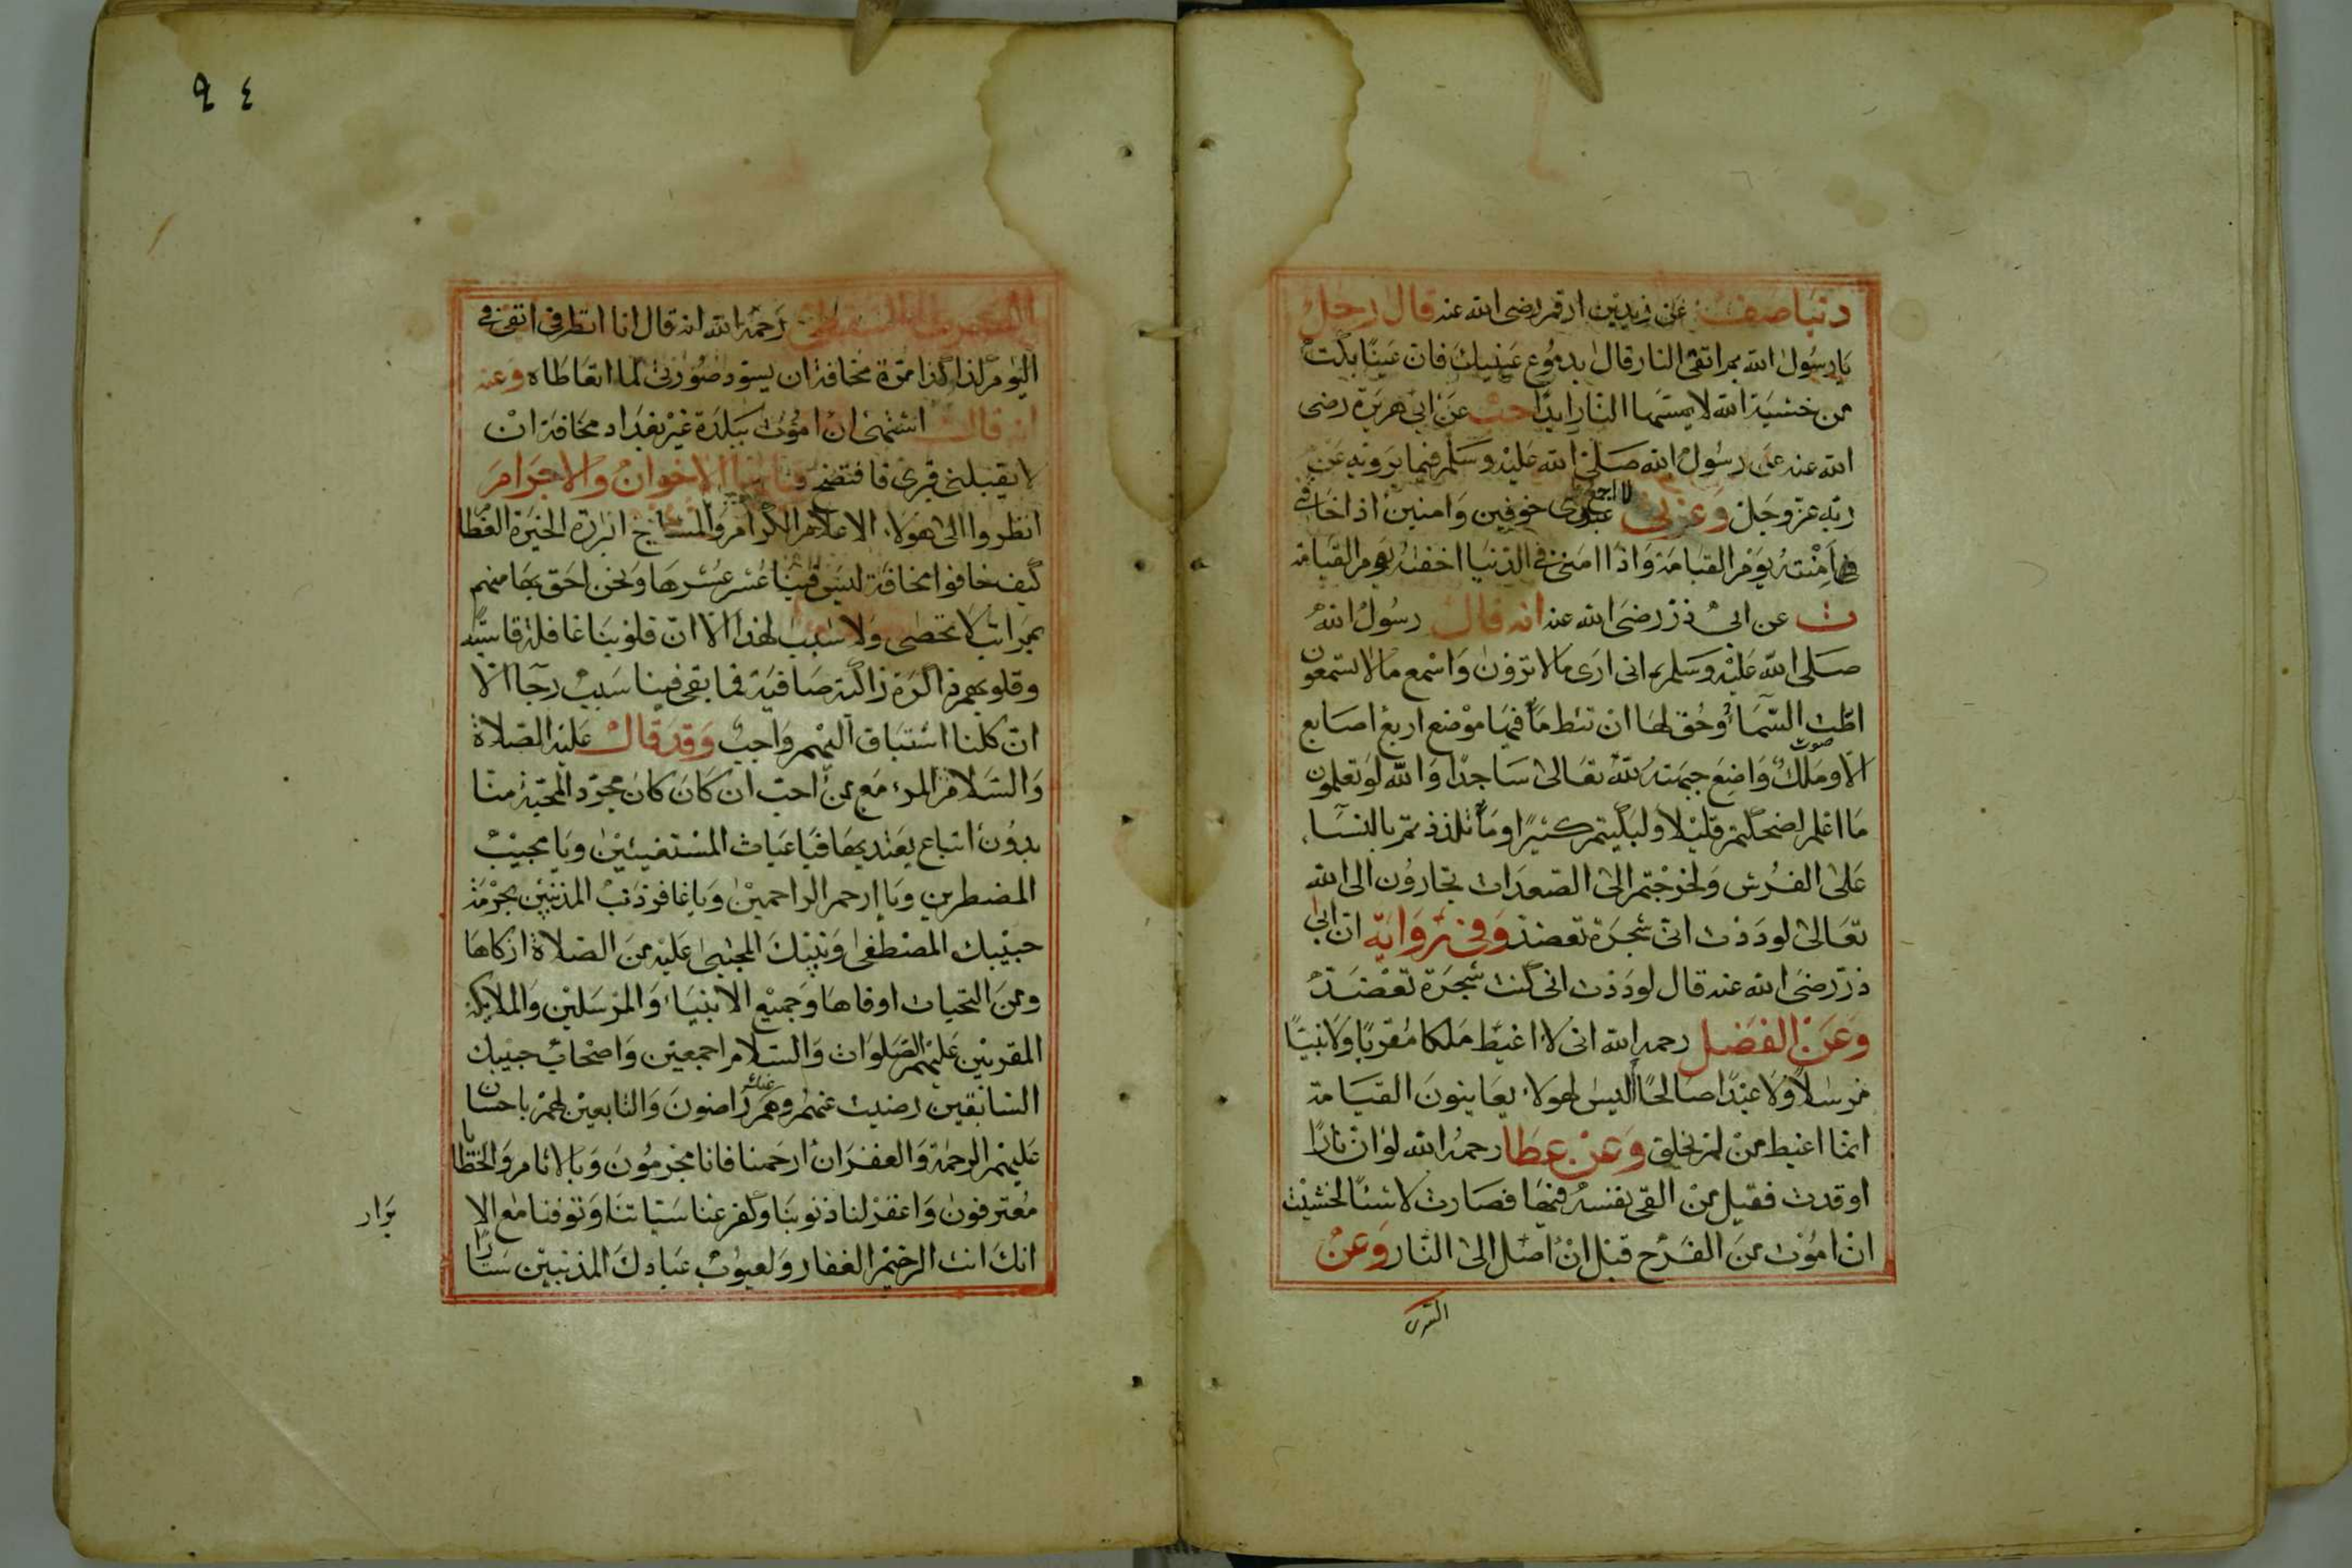 دنيا صف عن زيد بن ارقم رضى الله عنه قال رجل
يا رسول الله بم اتقى النار قال بدموع عينيك فان عينا بكت
من خشية الله لا يمسها النار ابدا حب عن ابى هريرة رضى
الله عنه عن رسول الله صلى الله عليه وسلم فيما يرويه عن
ربه عز وجل وعزتى لا اجمع على عبدى خوفين وامنين اذا خافنى
امنته يوم القيامة واذا امننى فى الدنيا اخفته يوم القيامة
ت عن ابى ذر رضى الله عنه انه قال رسول الله
صلى الله عليه وسلم انى ارى ما لا ترون واسمع ما لا تسمعون
اطت السماء وحق لها ان تئط ما فيها موضع اربع اصابع
صوت
الا وملك واضع جبهته لله تعالى ساجدا والله لو تعلمون
ما اعلم لضحكتم قليلا ولبكيتم كثيرا وما تلذذتم بالنساء
على الفرش ولخرجتم الى الصعدات تجارون الى الله
تعالى لوددت انى شجرة تعضد وفى رواية ان ابى
ذر رضى الله عنه قال لوددت انى كنت شجرة تعضد
وعن الفضل رحمه الله انى لا اغبط ملكا مقربا ولا نبيا
مرسلا ولا عبدا صالحا اليس لهولاء يعاينون القيامة
انما اغبط من لم يخلق وعن عطا رحمه الله لو ان نارا
اوقدت فقيل من القى نفسه فيها فصارت لا شئا لخشيت
ان اموت من الفرح قبل ان اصل الى النار وعن
السرى
٩٤
السرى السقطى رحمه الله انه قال انا انظر فى انفى فى
اليوم كذا كذا مرة مخافة ان يسود صورتى لما اتعاطاه وعنه
انه قال اشتهى ان اموت ببلدة غير بغداد مخافة ان
لا يقبلنى قبرى فافتضح فيا ايها الاخوان والاجرام
انظروا الى هولاء الاعلام الكرام والمشايخ البررة الخيرة العظام
كيف خافوا مخافة ليس فينا عشر عشرها ونحن احق بها منهم
بمراتب لا تحصى ولا سبب لهذا الا ان قلوبنا غافلة قاسية
وقلوبهم ذاكرة زاكية صافية فما بقى فينا سبب رجآ الا
ان كلنا اشتياق اليهم واجب وقد قال عليه الصلاة
والسلام المرء مع من احب ان كان كان مجرد المحبة منا
بدون اتباع يعتد بها فيا غياث المستغيثين ويا مجيب
المضطرين ويا ارحم الراحمين ويا غافر ذنب المذنبين بحرمة
حبيبك المصطفى ونبيك المجتبى عليه من الصلاة ازكاها
ومن التحيات اوفاها وجميع الانبياء والمرسلين والملايكة
المقربين عليهم الصلوات والسلام اجمعين واصحاب حبيبك
السابقين رضيت عنهم وهم عنك راضون والتابعين لهم باحسان
عليهم الرحمة والغفران ارحمنا فانا مجرمون وبالاثام والخطايا
معترفون واغفر لنا ذنوبنا وكفر عنا سيّاتنا وتوفنا مع الا
برار
انك انت الرحيم الغفار ولعيوب عبادك المذنبين ستارا